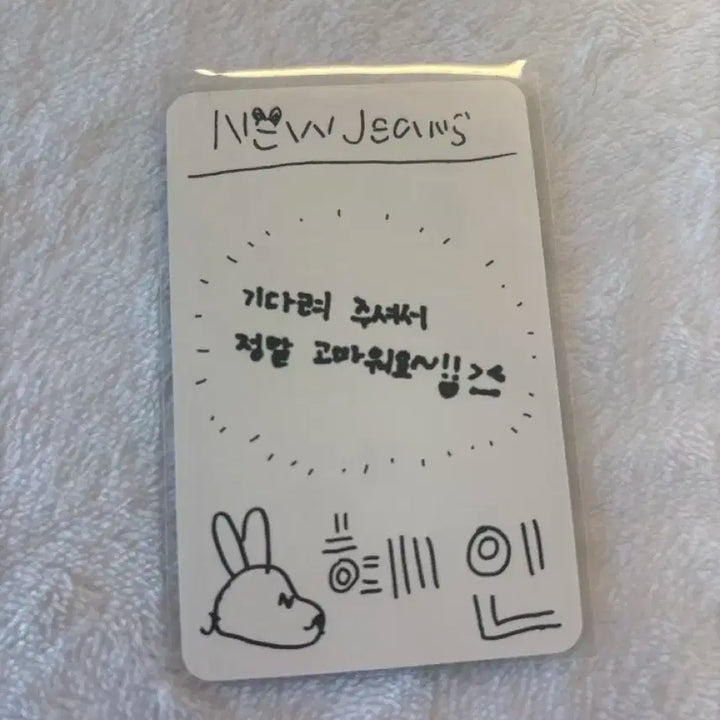 NEW JEANS
기다려 주셔서
정말 고마워요~!!
혜인